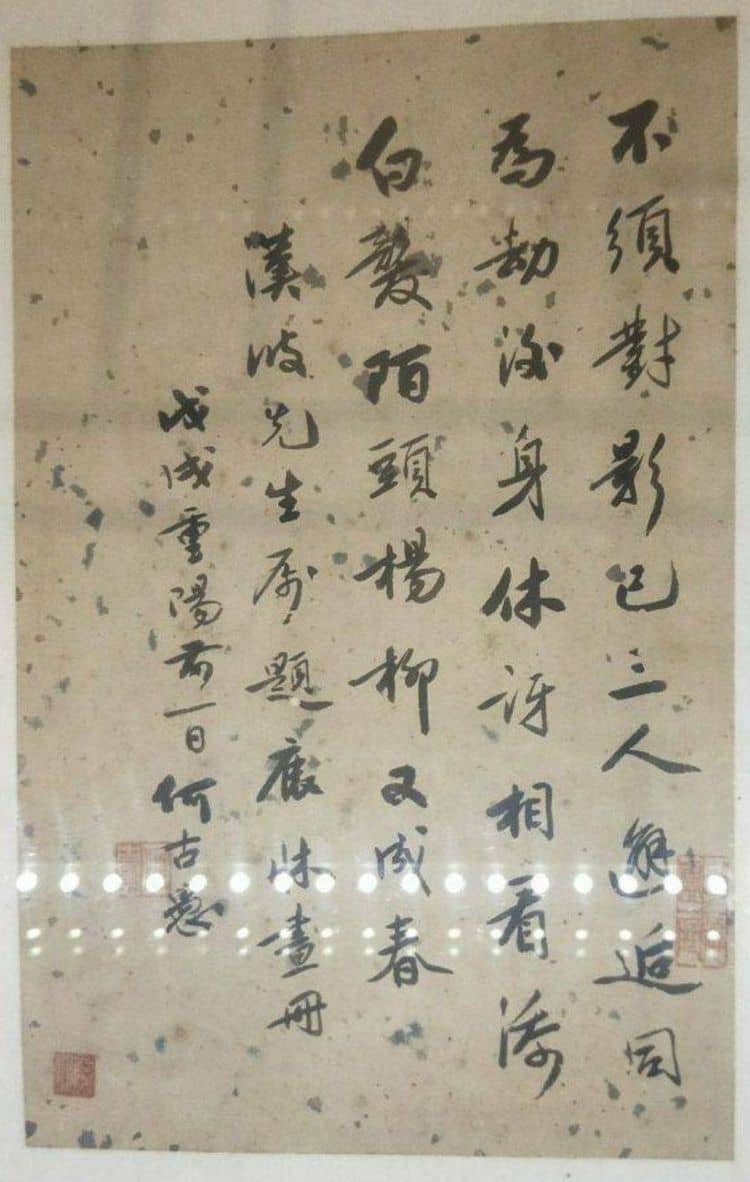 不須對影已三人邂逅同
為劫後身休訝相看添
白髮陌頭楊柳又成春
漢先生属題畫冊
戊戌重陽前一日何古愚